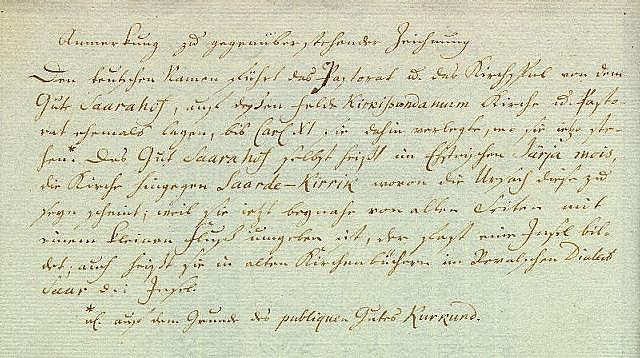 Anmerkung zu gegenüberstehender Zeichnung
Den teutschen Namen führet das Pastorat u. das Kirchspiel von dem
Gute Saarahof, auf dessen Felde Kirche u. Pasto-
rat ehemals lagen, bis Carl XI. sie dahin verlegte, wo sie jetzt ste-
hen.* Das Gut Saarahof selbst heißt im Ehstnischen Jürja mois,
die Kirche hingegen Saarde-Kirrik wovon die Ursach diese zu
seyn scheint; weil sie jetzt beynahe von allen Seiten mit
einem kleinen Fluß umgeben ist, der fast eine Insel bil-
det; auch heißt sie in alten Kirchenbüchern im Revalschen Dialect
Saar die Insel
* auf dem Grunde des publiquen Gutes Kurkund.